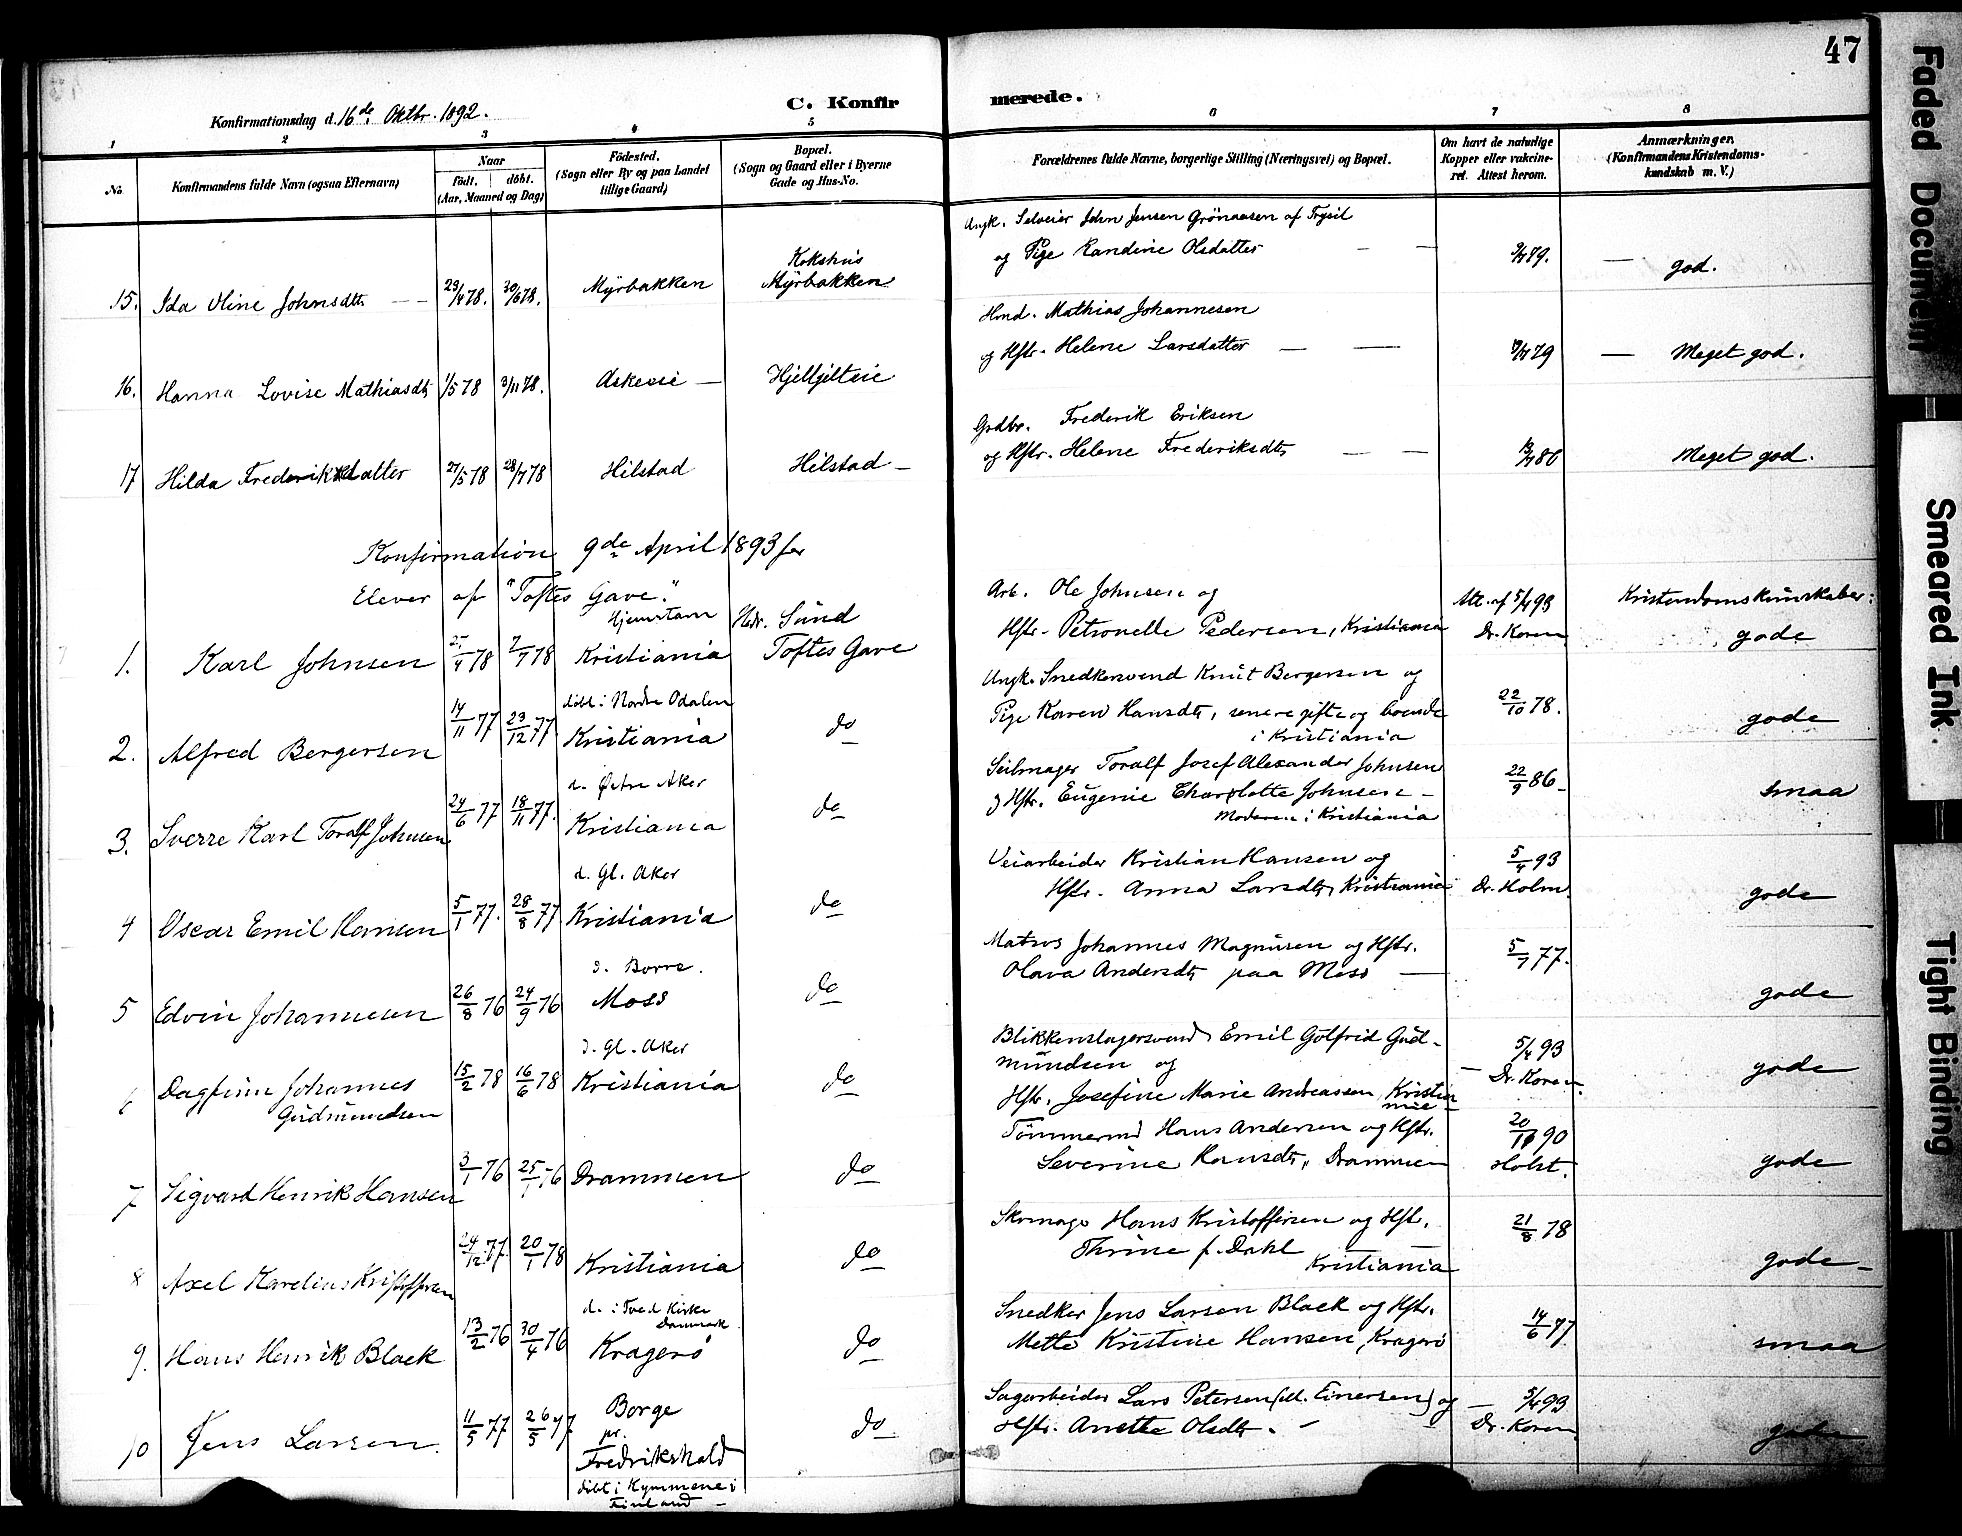 47
C. Konfirmerede.
Konfirmationsdag d. 16de Oktbr. 1892.
1 2 3 4 5 6 7 8
No.
Konfirmandens fulde Navn (ogsaa Efternavn)
Naar
födt. döbt.
(Aar, Maaned og Dag)
Födested.
(Sogn eller By og paa Landet
tillige Gaard)
Bopæl.
(Sogn og Gaard eller i Byerne
Gade og Hus-No.
Forældrenes fulde Navne, borgerlige Stilling (Næringsvei) og Bopæl.
Om havt de naturlige
Kopper eller vakcine-
ret. Attest herom.
Anmærkninger.
(Konfirmandens Kristendoms-
kundskab m. V.)
15. Ida Oline Johnsdtr 23/4 78. 30/6 78. Myrbakken
Kokshus
Myrbakken
Ungk. Selveier John Jensen Grönaasen af Trysil
og Pige Randine Olsdatter — — 79. — god.
16. Hanna Lovise Mathiasdtr 1/5 78 3/11 78. Askeeie — Hjelljelteie
Hmd. Mathias Johannesen
og Hstr. Helene Larsdatter — — 79 — Meget god.
17 Hilda Frederiksdatter 27/5 78 28/7 78 Hilstad Hilstad —
Grdbr. Frederik Eriksen
og Hstr. Helene Frederiksdtr — — 80 Meget god.
Konfirmation 9de April 1893 for
Elever af "Toftes Gave."
Hjemstavn Hedr. Sund
1. Karl Johnsen 25/4 78 7/7 78 Kristiania Toftes Gave
Arb. Ole Johnsen og
Hstr. Petronelle Pedersen, Kristiania
Att. af 5/4 93
Dr. Koren
Kristendomskunskaber:
gode
2. Alfred Bergersen 14/11 77 23/12 77
döbt i Nordre Odalen
Kristiania do
Ungk. Snedkersvend Knut Bergersen og
Pige Karen Hansdtr, senere gifte og boende
i Kristiania
22/10 78. gode
3. Sverre Karl Toralf Johnsen 24/6 77 18/11 77.
d. Østre Aker
Kristiania do
Seilmager Toralf Josef Alexander Johnsen
og Hstr. Eugenie Charlotte Johnsen —
Moderen i Kristiania
22/9 86 — smaa
4 Oscar Emil Hansen 5/1 77. 28/8 77
d. Gl. Aker
Kristiania do
Veiarbeider Kristian Hansen og
Hstr. Anna Larsdtr, Kristiania
5/4 93
Dr. Holm
gode
5 Edvin Johannesen 26/8 76 24/9 76
d. Borre.
Moss do
Matros Johannes Magnusen og Hstr.
Olava Andersdtr paa Moss —
5/7 77.
gode
6 Dagfinn Johannes
Gudmundsen 15/2 78 16/6 78
d. Gl. Aker
Kristiania do
Blikkenslagersvend Emil Gotfrid Gud-
mundsen og
Hstr. Josefine Marie Andreassen, Kristia
nia —
5/4 93
— Dr. Koren.
gode
7 Sigvard Henrik Hansen 3/1 76 25/1 76 Drammen do
Tömmermd Hans Andersen og Hstr.
Severine Hansdtr, Drammen
20/11 90
Holst.
gode
8 Axel Karelius Kristoffersen 24/12 77. 20/1 78 Kristiania do
Skomager Hans Kristoffersen og Hst.
Thrine f. Dahl
Kristiania
21/8 78
gode —
9. Hans Henrik Black 13/2 76 30/4 76
d. i Tved Kirke
Danmark.
Kragerö do
Snedker Jens Larsen Black og Hstr.
Mette Kristine Hansen, Kragerö
14/6 77.
smaa
10 Jens Larsen. 11/5 77 26/5 77
Borge
pr.
Fredrikshald
döbt i Kymmene i
Finland —
do
Sagarbeider Lars Petersen (ell. Einersen) og
Hstr. Anette Olsdtr. —
— 5/4 93
Dr. Koren.
gode
Faded Document
Smeared Ink.
Tight Binding